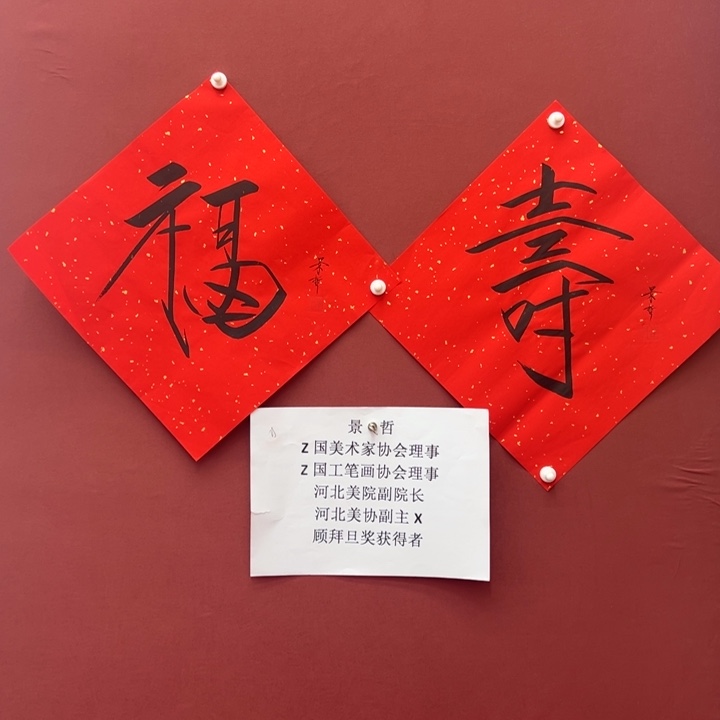 福
寿
景 哲
Z 国美术家协会理事
Z 国工笔画协会理事
河北美院副院长
河北美协副主 X
顾拜旦奖获得者